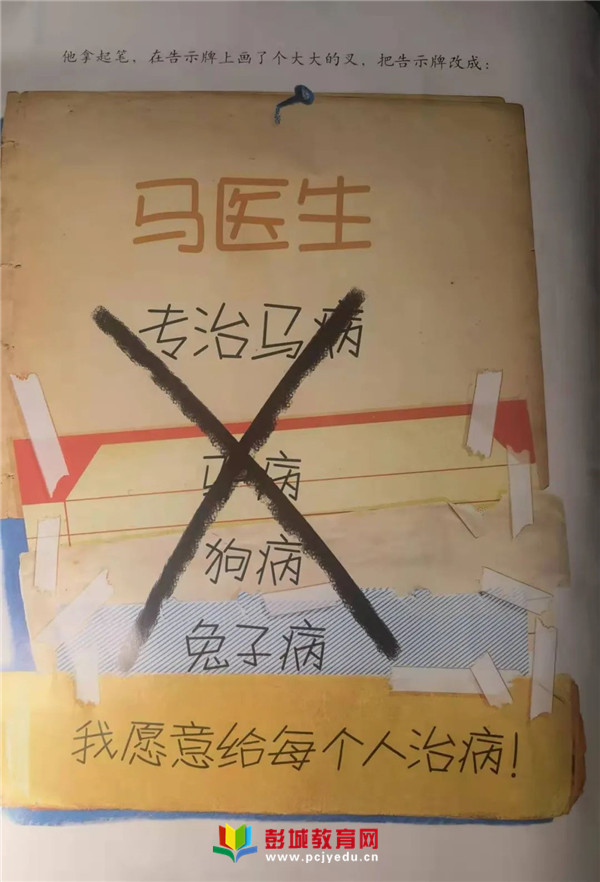 他拿起笔，在告示牌上画了个大大的叉，把告示牌改成：
马医生
专治马病
病
狗病
兔子病
我愿意给每个人治病！
彭城教育网
www.pcjyedu.cn